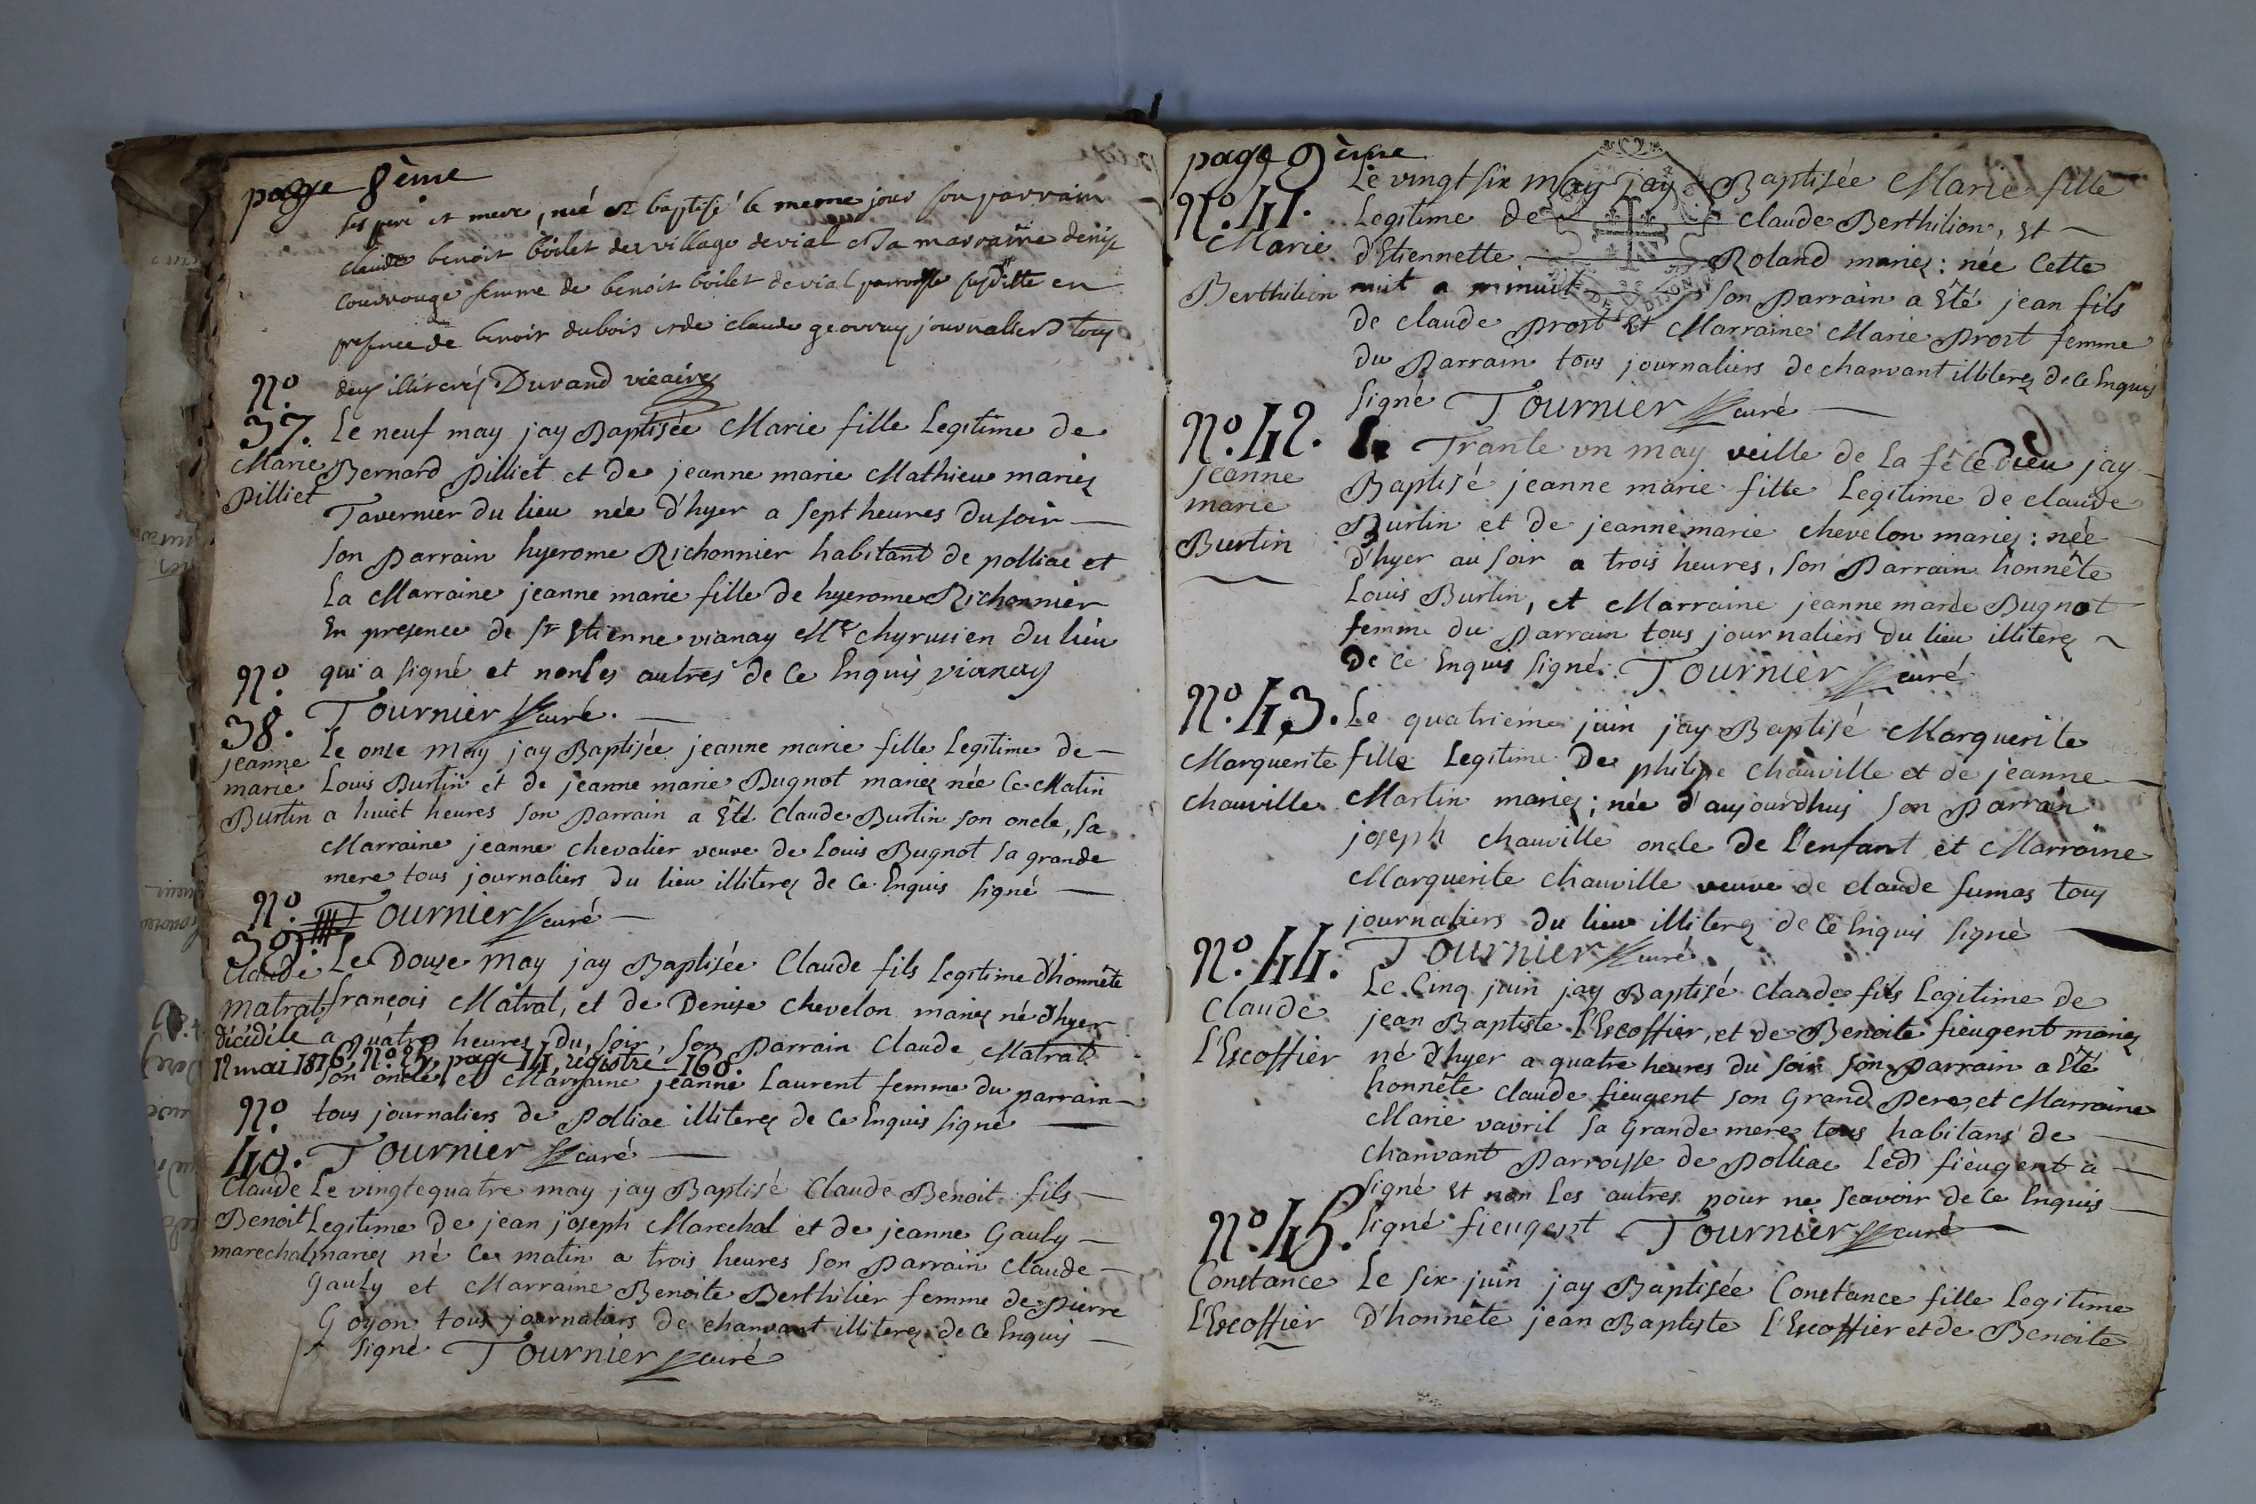 page 8ème
ses pere et mere, né et baptisé le meme jour son parrain
claude benoit boilet du village de vial et la marraine denise
couvrouge femme de benoit boilet de vial parroisse susditte en
presence de benoit dubois et de claude geovray journaliers tous
deux illiterés Durand vicaire
No. 37. Le neuf may jay Baptisée Marie fille Legitime de
Marie Pilliet
Bernard Pilliet et de jeanne marie Mathieu mariez
Tavernier du lieu née d'hyer a sept heures du soir
son Parrain hyerome Richonnier habitant de polliac et
La Marraine jeanne marie fille de hyerome Richonnier
En presence de Sr Etienne vianay Me chyrurien du lieu
qui a signé et non les autres de ce Enquis vianay
Tournier curé.
No. 38. Le onze may jay Baptisée jeanne marie fille Legitime de
jeanne marie Burtin
Louis Burtin et de jeanne marie Bugnot mariez née Ce Matin
a huict heures son Parrain a Eté Claude Burtin son oncle, sa
Marraine jeanne chevalier veuve de Louis Bugnot sa grande
mere tous journaliers du lieu illiterez de Ce Enquis signé
Tournier curé
No. 39. Le Douze May jay Baptisée Claude fils Legitime d'honnête
Claude Matrat
françois Matrat, et de Denise chevelon mariez né d'hyer
a quatre heures du soir, son Parrain Claude Matrat
décédé le 12 mai 1816, No. 25, page 14, registre 168.
son oncle, et Marraine jeanne Laurent femme du parrain
tous journaliers de Polliac illiterez de Ce Enquis signé
Tournier curé
No. 40. Le vingtequatre may jay Baptisé Claude Benoit fils
Claude Benoit marechal
Legitime de jean joseph Marechal et de jeanne Gauly
mariez né Ce matin a trois heures son Parrain Claude
Gauly et Marraine Benoite Berthilier femme de Pierre
Goyon tous journaliers de chanvant illiterez de Ce Enquis
signé Tournier curé
page 9ème
No. 41. Le vingt six may jay Baptisée Marie fille
Marie Berthilion
Legitime de claude Berthilion, Et
d'Etiennette Roland mariez : née Cette
nuit a minuit, son Parrain a Eté jean fils
de claude Prost Et Marraine Marie Prost femme
du Parrain tous journaliers de chanvant illiterez de Ce Enquis
signé Tournier curé
No. 42. Le Trante un may veille de la fête Dieu jay
jeanne marie Burtin
Baptisé jeanne marie fille Legitime de claude
Burtin et de jeanne marie chevelon mariez : née
d'hyer au soir a trois heures, son Parrain honnête
Louis Burtin, et Marraine jeanne marie Bugnot
femme du Parrain tous journaliers du lieu illiterez
De Ce Enquis signé. Tournier curé
No. 43. Le quatrieme juin jay Baptisé Marguerite
Marguerite chauville
fille Legitime De philipe chauville et de jeanne
Martin mariez ; née d'aujourdhuy son Parrain
joseph chauville oncle de l'enfant et Marraine
Marguerite chauville veuve de claude sumas tous
journaliers du lieu illiterez de Ce Enquis signé
Tournier curé
No. 44. Le Cinq juin jay Baptisé Claude fils Legitime de
Claude L'Escoffier
jean Baptiste L'Escoffier, et de Benoite fieugent mariez
né d'hyer a quatre heures du soir son Parrain a Eté
honnête claude fieugent son Grand Pere, et Marraine
Marie vavril sa Grande mere tous habitans de
chanvant Parroisse de Polliac Led. fieugent a
signé Et non Les autres pour ne scavoir de Ce Enquis
signé fieugent Tournier curé
No. 45. Le six juin jay Baptisée Constance fille Legitime
Constance L'Escoffier
D'honnête jean Baptiste L'Escoffier et de Benoite